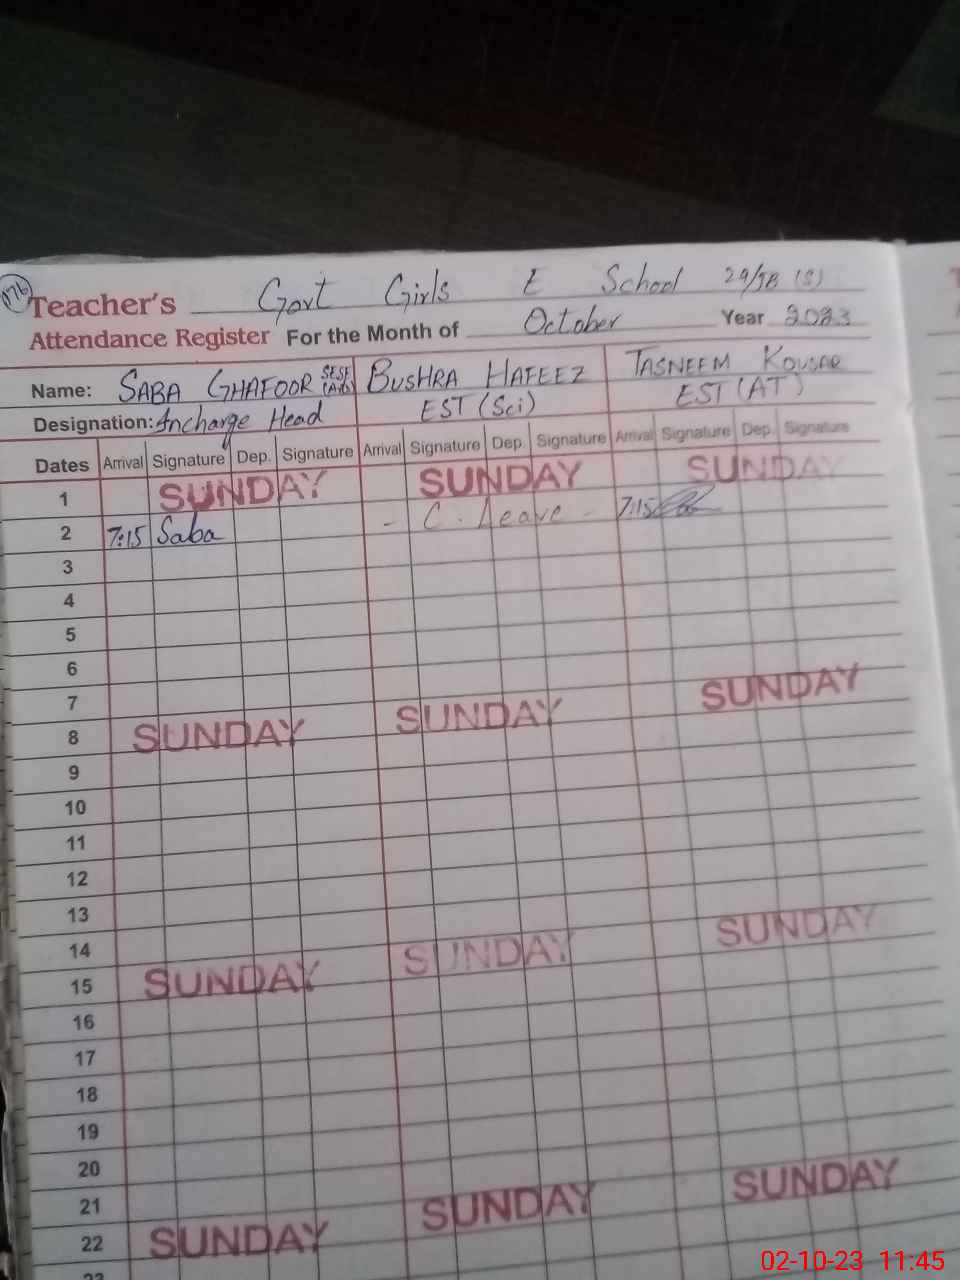 176
Teacher's Govt Girls E School 29/SB (S)
Attendance Register For the Month of October Year 2023
Name: SABA GHAFOOR SESE (Arts) BUSHRA HAFEEZ TASNEEM KOUSAR
Designation: Incharge Head EST (Sci) EST (AT)
Dates Arrival Signature Dep. Signature Arrival Signature Dep. Signature Arrival Signature Dep. Signature
1 SUNDAY SUNDAY SUNDAY
2 7:15 Saba - C. Leave - 7:15
3
4
5
6
7
8 SUNDAY SUNDAY SUNDAY
9
10
11
12
13
14
15 SUNDAY SUNDAY SUNDAY
16
17
18
19
20
21
22 SUNDAY SUNDAY SUNDAY
23
02-10-23 11:45